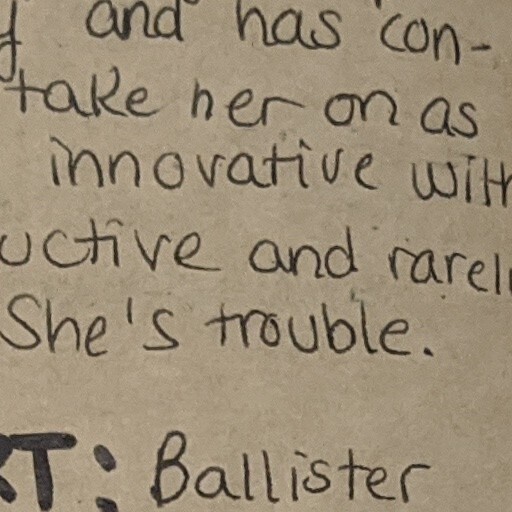 and has con-
take her on as
innovative with
uctive and rarel
She's trouble.
T: Ballister